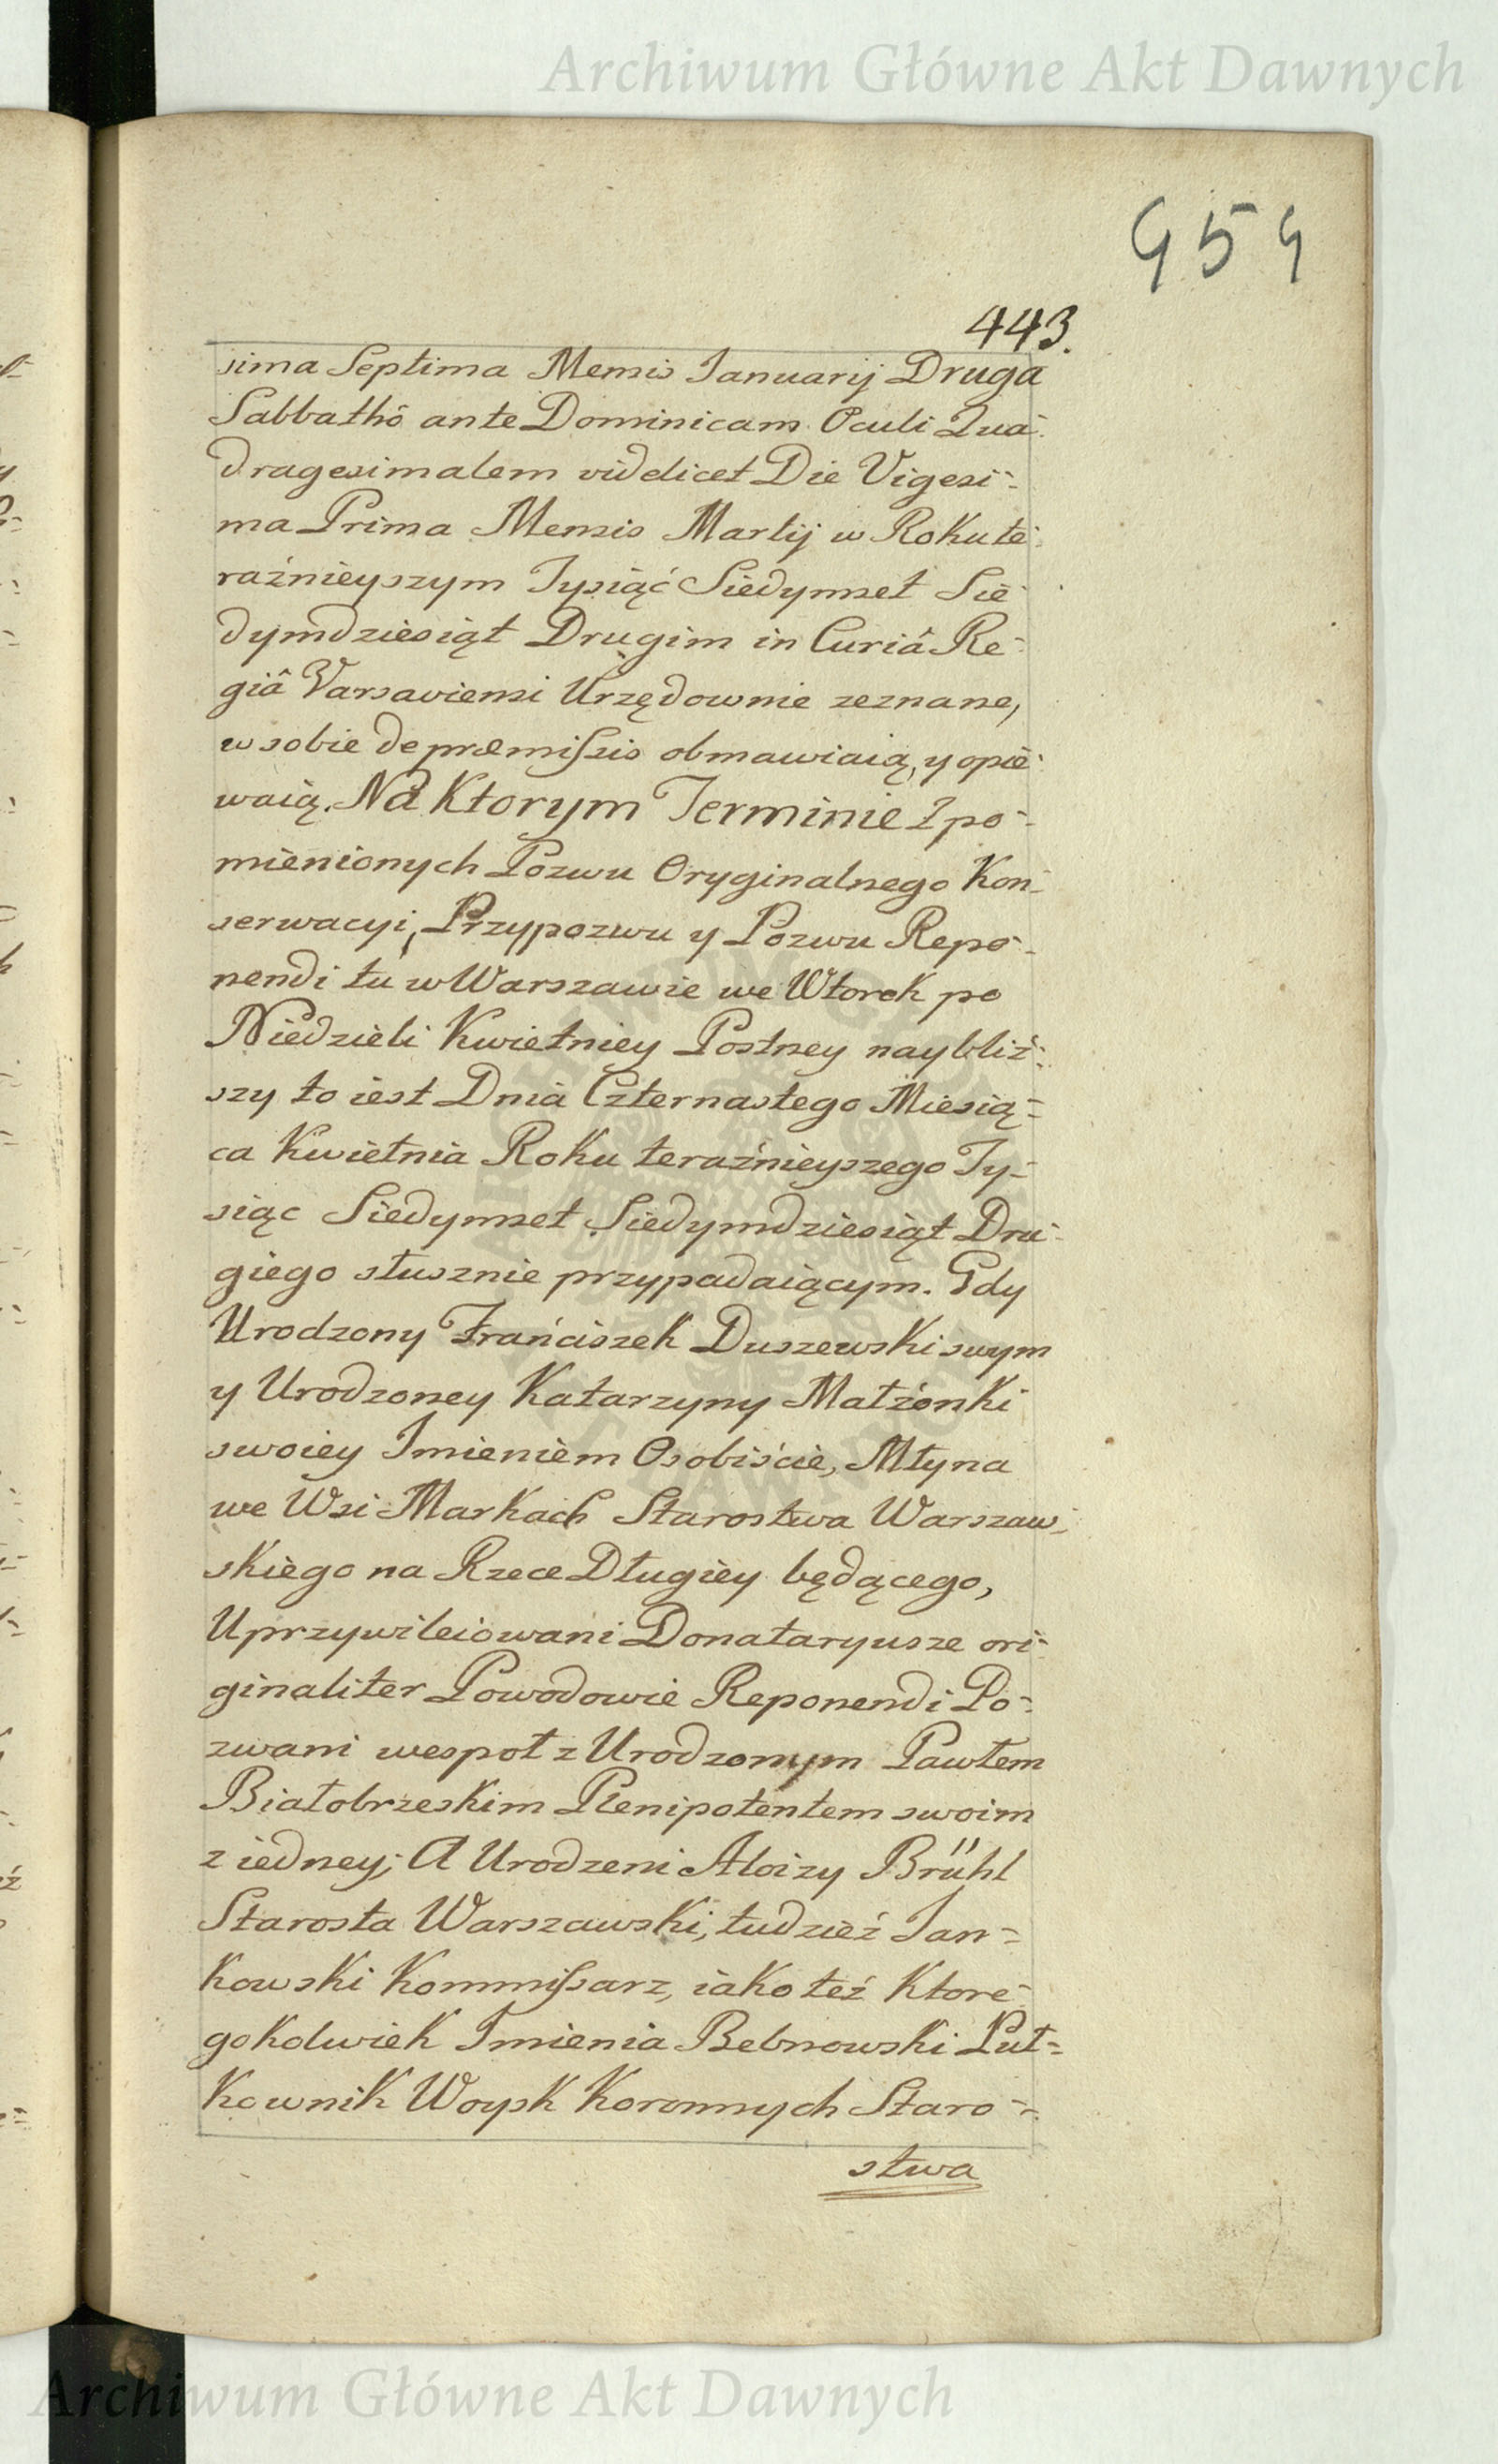 Archiwum Główne Akt Dawnych
454
443.
sima Septima Mensis Januarij Druga
Sabbathô ante Dominicam Oculi Qua-
dragesimalem videlicet Die Vigesi-
ma Prima Mensis Martij w Roku te-
raźnieyszym Tysiąć Siedymset Sie-
dymdziesiąt Drugim in Curiâ Re-
giâ Varsaviensi Urzędownie zeznane,
w sobie de præmißis obmawiaią, y opie-
waią. Na Ktorym Terminie z po-
mienionych Pozwu Oryginalnego Kon-
serwacyi, Przypozwu y Pozwu Repo-
nendi tu w Warszawie we Wtorek po
Niedzieli Kwietniey Postney naybliż-
szy to iest Dnia Czternastego Miesią-
ca Kwietnia Roku teraźnieyszego Ty-
siąc Siedymset Siedymdziesiąt Dru-
giego słusznie przypadaiącym. Gdy
Urodzony Franciszek Duszewski swym
y Urodzoney Katarzyny Małżonki
swoiey Imieniem Osobiście, Młyna
we Wsi Markach Starostwa Warszaw-
skiego na Rzece Długiey będącego,
Uprzywileiowani Donataryusze ori-
ginaliter Powodowie Reponendi Po-
zwani wespoł z Urodzonym Pawłem
Białobrzeskim Plenipotentem swoim
z iedney; A Urodzeni Aloizy Brühl
Starosta Warszawski, tudzież Jan-
kowski Kommißarz, iako też Ktore-
gokolwiek Imienia Bebnowski Puł-
kownik Woysk Koronnych Staro-
stwa
Archiwum Główne Akt Dawnych